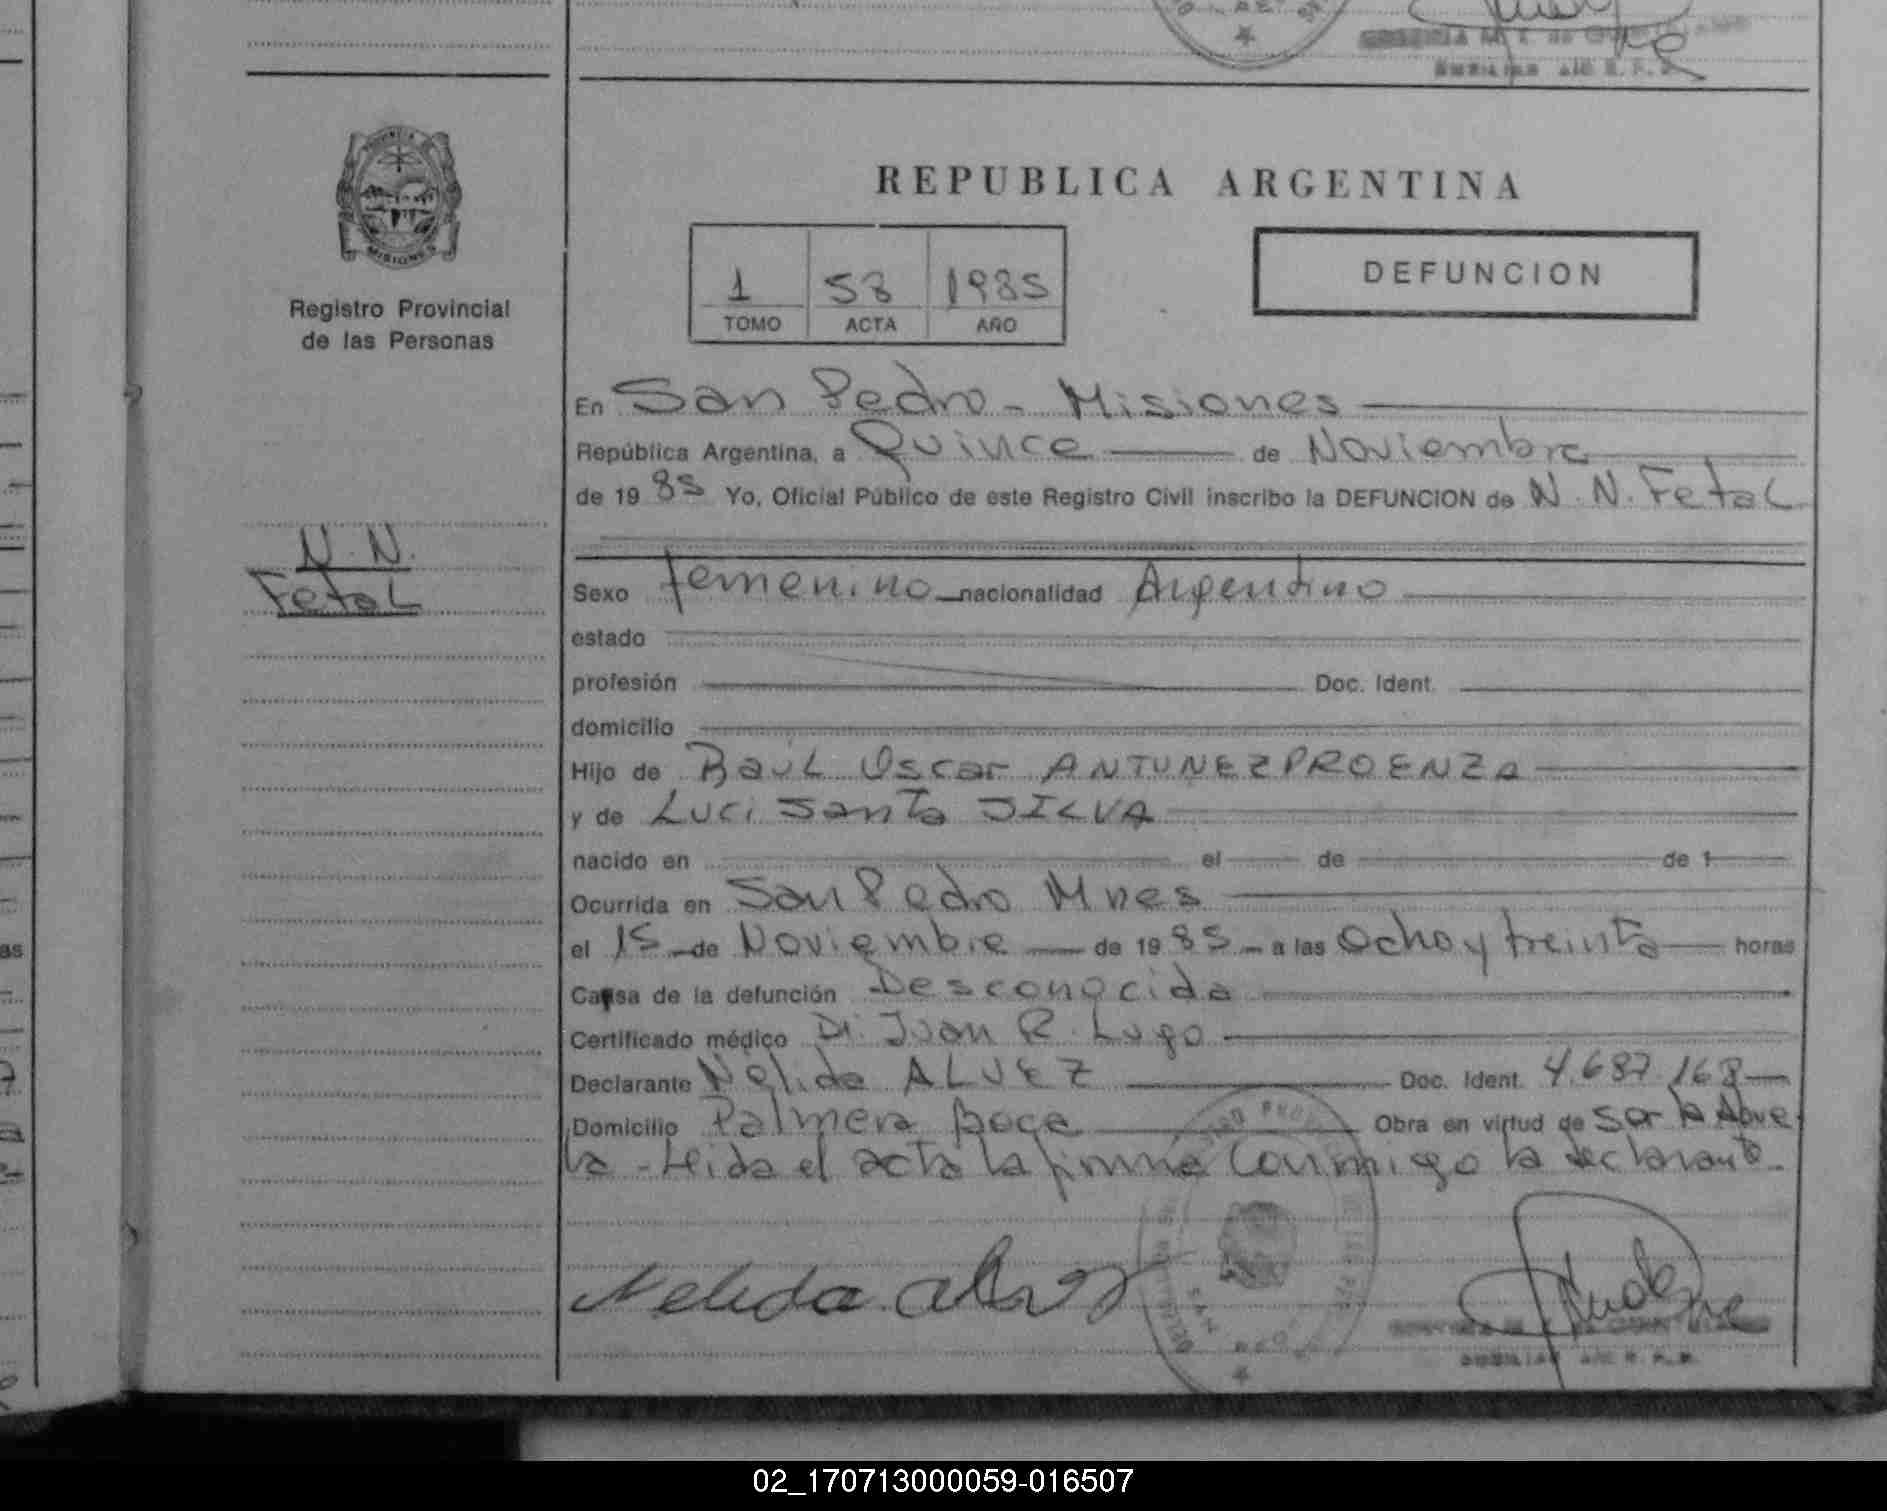 REPUBLICA ARGENTINA
PROVINCIA
MISIONES
Registro Provincial
de las Personas
1 58 1985
TOMO ACTA AÑO
DEFUNCION
N.N.
Fetal
En San Pedro - Misiones
República Argentina, a Quince de Noviembre
de 19 85 Yo, Oficial Público de este Registro Civil inscribo la DEFUNCION de N.N. Fetal
Sexo femenino nacionalidad Argentino
estado
profesión Doc. Ident.
domicilio
Hijo de Raúl Oscar ANTUNEZ PROENZA
y de Luci Santa SILVA
nacido en el de de 1
Ocurrida en San Pedro Mnes
el 15 de Noviembre de 19 85 a las Ocho y treinta horas
Causa de la defunción Desconocida
Certificado médico Dr. Juan R. Lugo
Declarante Nélida ALVEZ Doc. Ident. 4.687.168
Domicilio Palmera Boca Obra en virtud de ser la Abue
la - Leida el acta la firma Conmigo la declarante.
Nelida Alvez
02_170713000059-016507